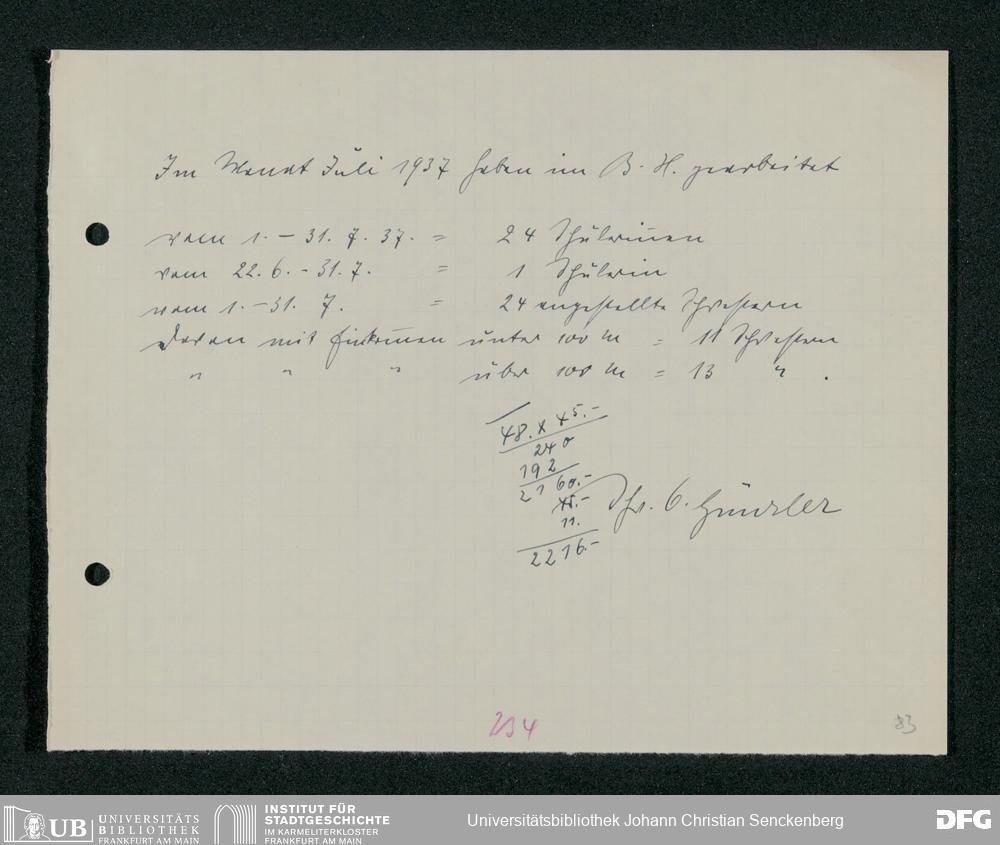 Im Monat Juli 1937 haben im B. H. gearbeitet
vom 1. – 31. 7. 37. = 24 Schülerinnen
vom 22. 6. – 31. 7. = 1 Schülerin
vom 1. – 31. 7. = 24 angestellte Schwestern
Davon mit Einkommen unter 100 M = 11 Schwestern
" " " über 100 M = 13 " .
48. x 45.–
240
192
2160.–
45.–
11.
2216.–
Schw. O.
234
83
UB UNIVERSITÄTS
BIBLIOTHEK
FRANKFURT AM MAIN
INSTITUT FÜR
STADTGESCHICHTE
IM KARMELITERKLOSTER
FRANKFURT AM MAIN
Universitätsbibliothek Johann Christian Senckenberg
DFG